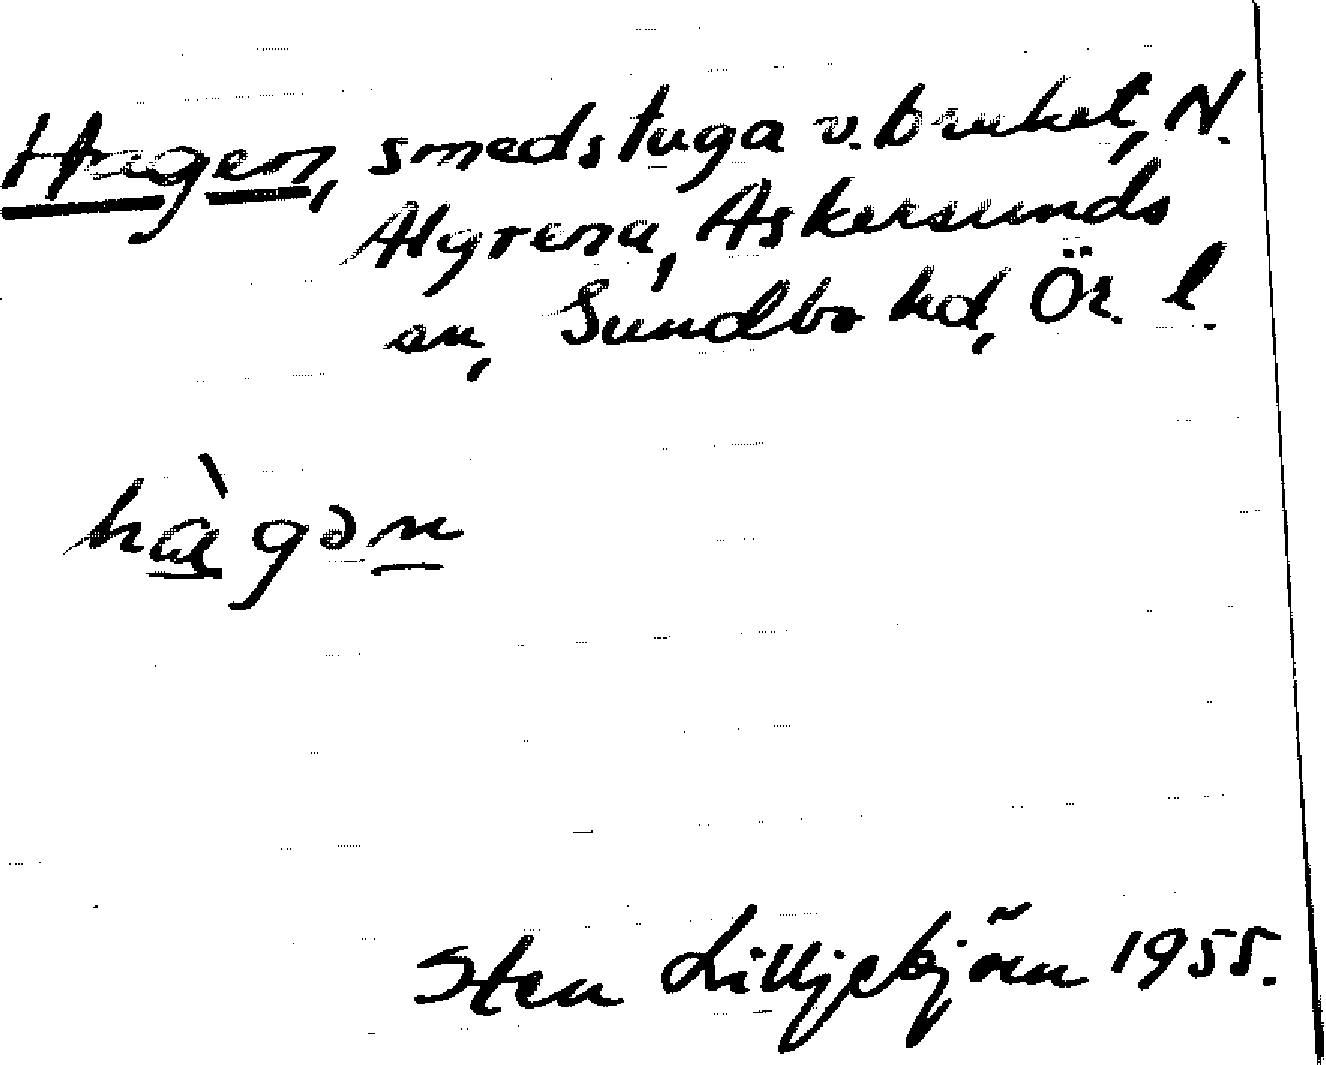 Hagen, smedstuga v. bruket, N.
Algrena, Askersunds
sn, Sundbo hd, Ör. l.
hàgən
Sten Lilljebjörn 1955.